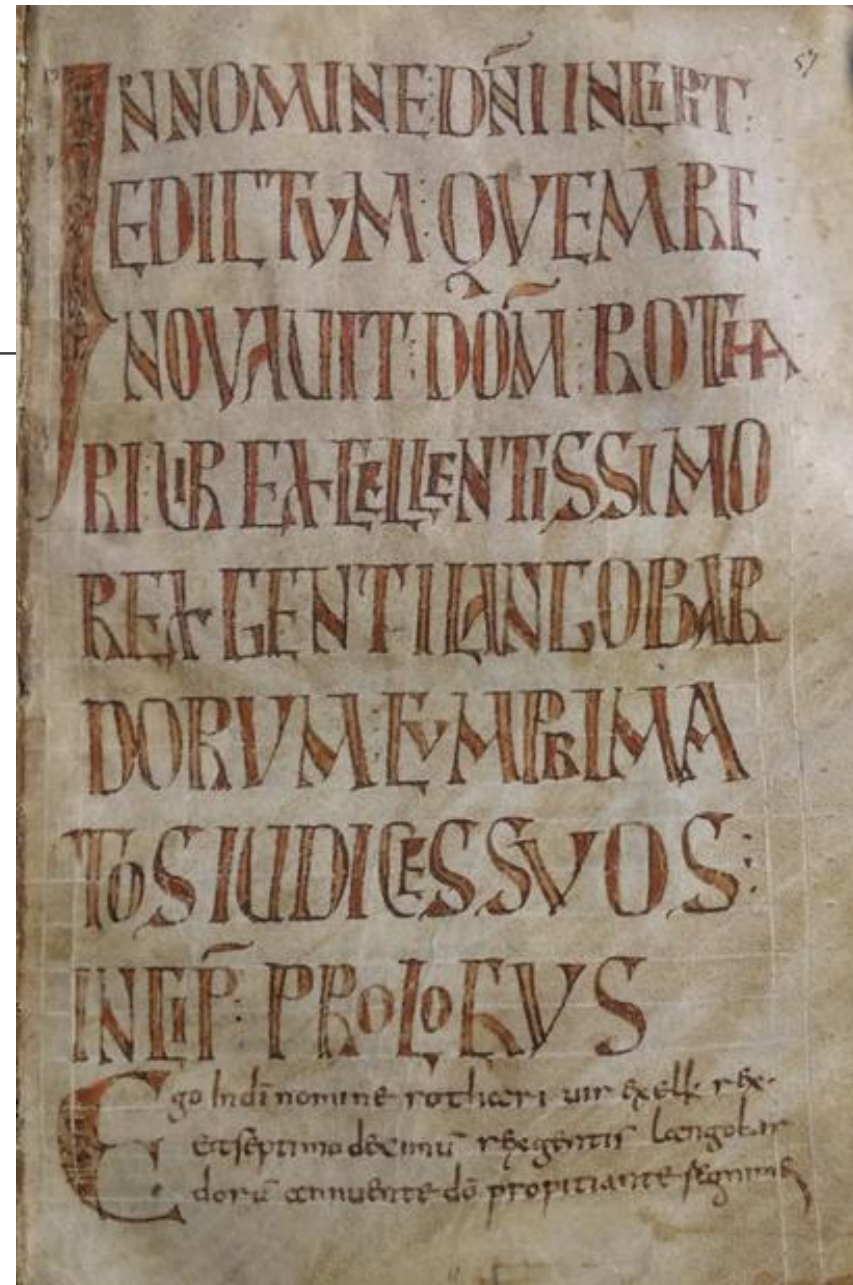 57
IN NOMINE DÑI INCIPIT
EDICTUM : QVEM RE
NOVAUIT : DOM̄ : ROTHA
RI UIR EXCELLENTISSIMO
REX GENTI LANGOBAR
DORVM : CVM PRIMA
TOS IUDICES SVOS :
INCIP̄ : PROLOGVS
Ego In dī nomine rothari uir exell rex
et septimo decimū rex gentis langobar
dorū annuente dō propitiante